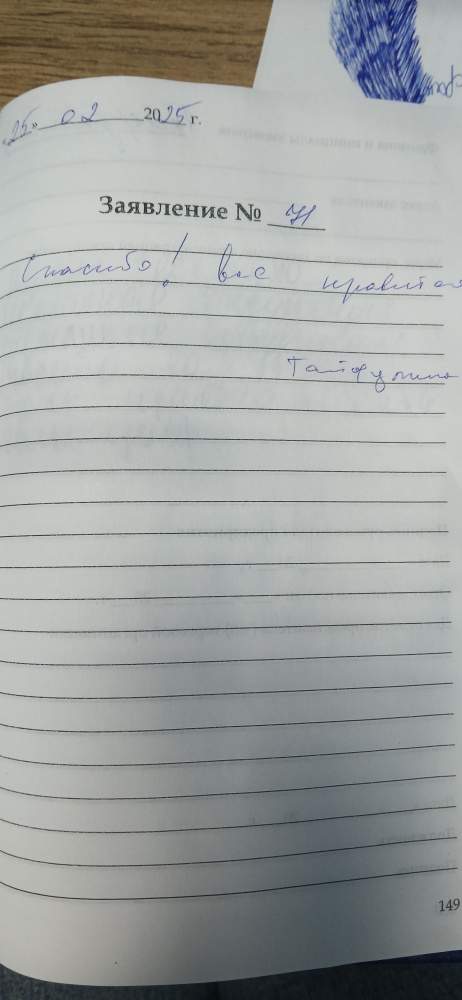 «25» 02 2025 г.
Заявление № 71
Спасибо! Все нравится
149